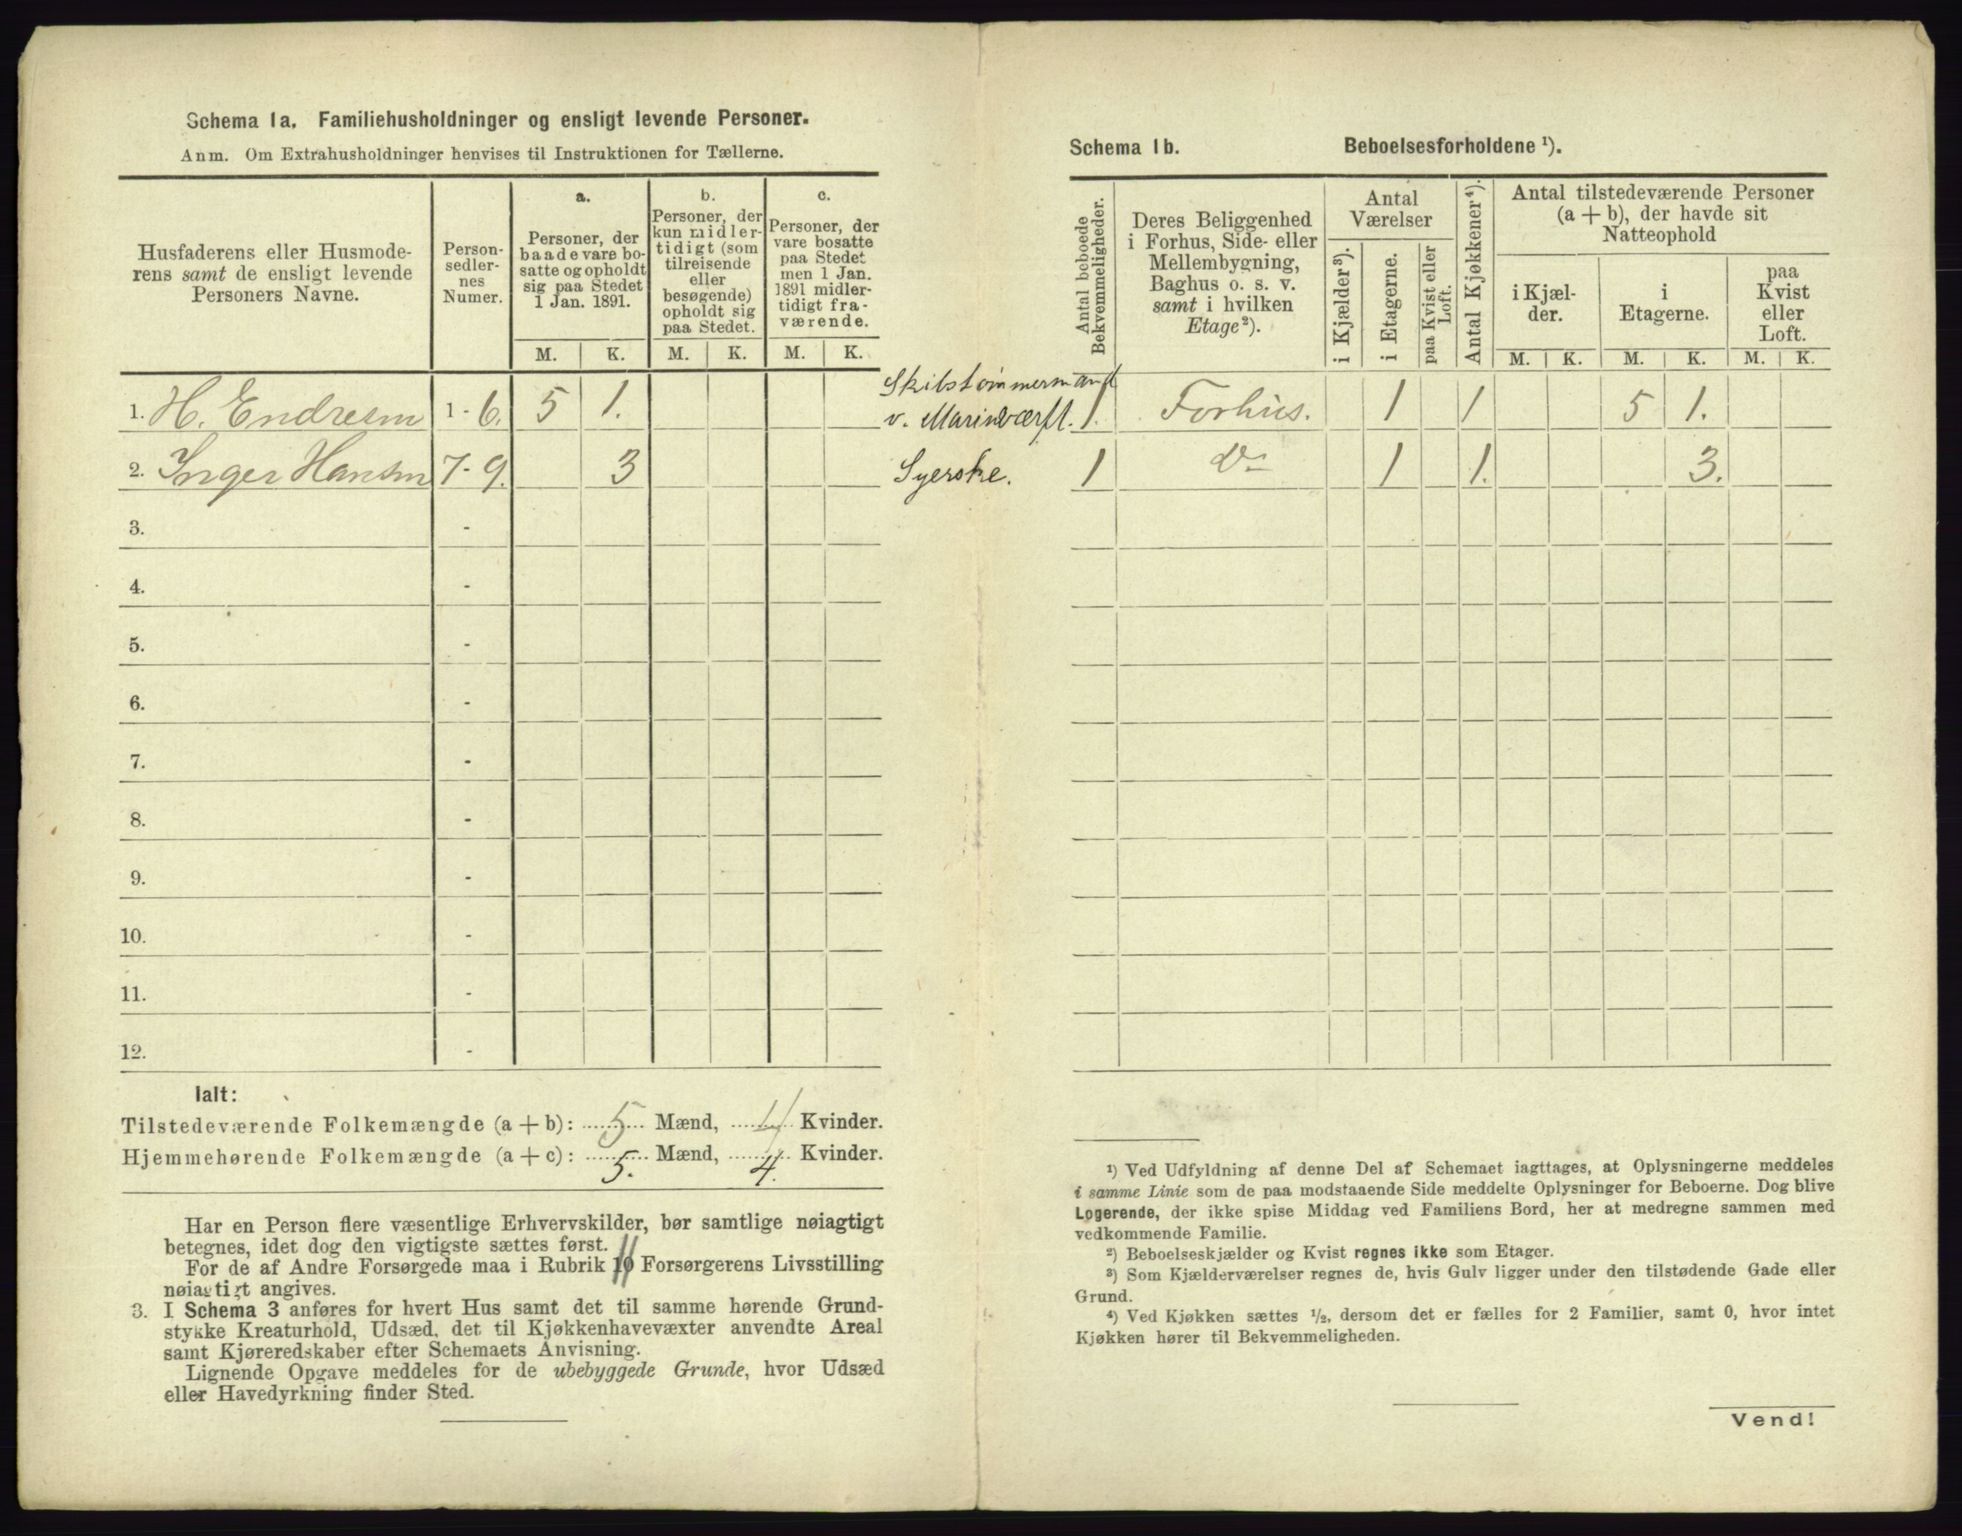 Schema 1a. Familiehusholdninger og ensligt levende Personer.
Anm. Om Extrahusholdninger henvises til Instruktionen for Tællerne.
Husfaderens eller Husmode-
rens samt de ensligt levende
Personers Navne.
Person-
sedler-
nes
Numer.
a.
Personer, der
baade vare bo-
satte og opholdt
sig paa Stedet
1 Jan. 1891.
b.
Personer, der
kun midler-
tidigt (som
tilreisende
eller
besøgende)
opholdt sig
paa Stedet.
c.
Personer, der
vare bosatte
paa Stedet
men 1 Jan.
1891 midler-
tidigt fra-
værende.
M. K. M. K. M. K.
1. H. Endresen 1-6. 5 1.
2. Inger Hansen 7-9. 3
3. -
4. -
5. -
6. -
7. -
8. -
9. -
10. -
11. -
12. -
Ialt:
Tilstedeværende Folkemængde (a + b): 5 Mænd, 4 Kvinder.
Hjemmehørende Folkemængde (a + c): 5. Mænd, 4. Kvinder.
Har en Person flere væsentlige Erhvervskilder, bør samtlige nøiagtigt
betegnes, idet dog den vigtigste sættes først.
For de af Andre Forsørgede maa i Rubrik 11 Forsørgerens Livsstilling
nøiagtigt angives.
3. I Schema 3 anføres for hvert Hus samt det til samme hørende Grund-
stykke Kreaturhold, Udsæd, det til Kjøkkenhavevæxter anvendte Areal
samt Kjøreredskaber efter Schemaets Anvisning.
Lignende Opgave meddeles for de ubebyggede Grunde, hvor Udsæd
eller Havedyrkning finder Sted.
Schema 1b. Beboelsesforholdene ¹).
Antal beboede
Bekvemmeligheder.
Deres Beliggenhed
i Forhus, Side- eller
Mellembygning,
Baghus o. s. v.
samt i hvilken
Etage²).
Antal
Værelser
i Kjælder³).
i Etagerne.
paa Kvist eller
Loft.
Antal Kjøkkener⁴).
Antal tilstedeværende Personer
(a + b), der havde sit
Natteophold
i Kjæl-
der.
i
Etagerne.
paa
Kvist
eller
Loft.
M. K. M. K. M. K.
Skibstømmermand
v. Marineværft. 1. Forhus. 1 1 5 1.
Syerske. 1 Do 1 1. 3.
¹) Ved Udfyldning af denne Del af Schemaet iagttages, at Oplysningerne meddeles
i samme Linie som de paa modstaaende Side meddelte Oplysninger for Beboerne. Dog blive
Logerende, der ikke spise Middag ved Familiens Bord, her at medregne sammen med
vedkommende Familie.
²) Beboelseskjælder og Kvist regnes ikke som Etager.
³) Som Kjælderværelser regnes de, hvis Gulv ligger under den tilstødende Gade eller
Grund.
⁴) Ved Kjøkken sættes ½, dersom det er fælles for 2 Familier, samt 0, hvor intet
Kjøkken hører til Bekvemmeligheden.
Vend!